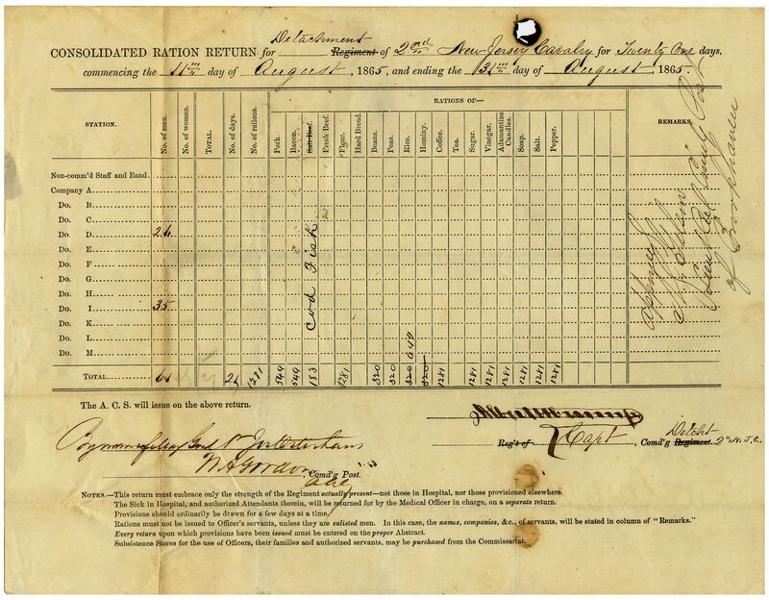 Detachment
CONSOLIDATED RATION RETURN for Regiment of 2nd New Jersey Cavalry for Twenty One days,
commencing the 11th day of August, 1865, and ending the 31st day of August, 1865.
STATION.
No. of men.
No. of women.
TOTAL.
No. of days.
No. of rations.
RATIONS OF—
Pork.
Bacon.
Salt Beef.
Fresh Beef.
Flour.
Hard Bread.
Beans.
Peas.
Rice.
Hominy.
Coffee.
Tea.
Sugar.
Vinegar.
Adamantine Candles.
Soap.
Salt.
Pepper.
REMARKS.
Non-comm'd Staff and Band
Company A
Do. B
Do. C
Do. D 26
Do. E
Do. F
Do. G
Do. H
Do. I 35
Do. K
Do. L
Do. M
Cod Fish
TOTAL 61 21 1281 549 549 183 1281 320 320 320 1281 1281 1281 1281 1281 1281 1281
Approved
The A. C. S. will issue on the above return.
Reg't of Capt, Com'd'g Regiment. Detcht 2d N.J.C.
By
W A Gordon, Comd'g Post.
NOTES.—This return must embrace only the strength of the Regiment actually present—not those in Hospital, nor those provisioned elsewhere.
The Sick in Hospital, and authorized Attendants therein, will be returned for by the Medical Officer in charge, on a separate return.
Provisions should ordinarily be drawn for a few days at a time.
Rations must not be issued to Officer's servants, unless they are enlisted men. In this case, the names, companies, &c., of servants, will be stated in column of "Remarks."
Every return upon which provisions have been issued must be entered on the proper Abstract.
Subsistence Stores for the use of Officers, their families and authorized servants, may be purchased from the Commissariat.